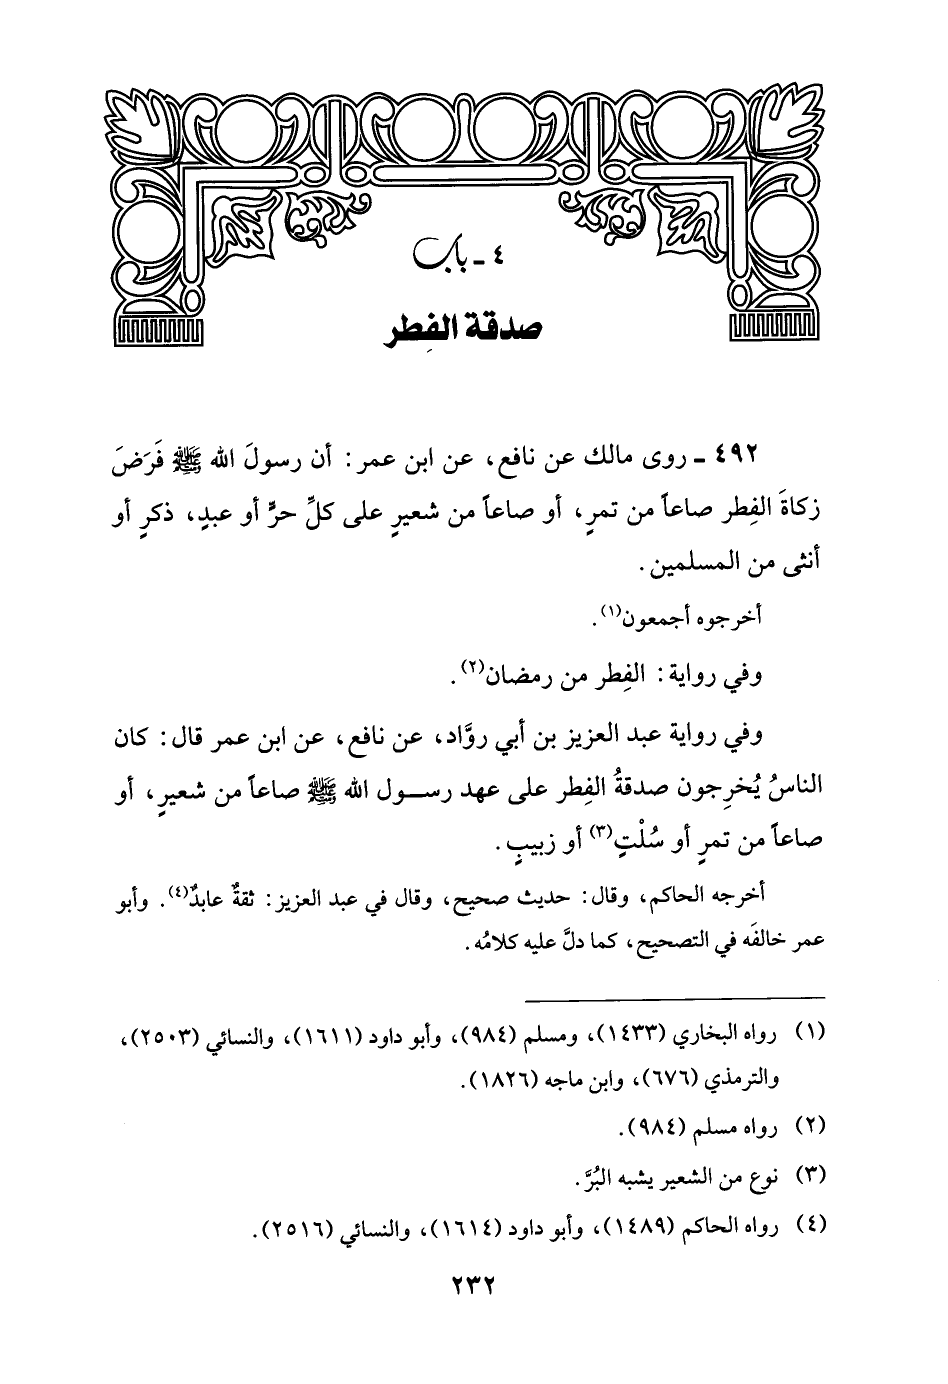 ٤ - باب
صدقة الفِطر
٤٩٢ - روى مالك عن نافع، عن ابن عمر: أن رسولَ الله ﷺ فَرَضَ
زكاةَ الفِطر صاعاً من تمرٍ، أو صاعاً من شعيرٍ على كلِّ حرٍّ أو عبدٍ، ذكرٍ أو
أنثى من المسلمين.
أخرجوه أجمعون(١).
وفي رواية: الفِطر من رمضان(٢).
وفي رواية عبد العزيز بن أبي روَّاد، عن نافع، عن ابن عمر قال: كان
الناسُ يُخرِجون صدقةُ الفِطر على عهد رسول الله ﷺ صاعاً من شعيرٍ، أو
صاعاً من تمرٍ أو سُلْتٍ(٣) أو زبيبٍ.
أخرجه الحاكم، وقال: حديث صحيح، وقال في عبد العزيز: ثقةٌ عابدٌ(٤). وأبو
عمر خالفَه في التصحيح، كما دلَّ عليه كلامُه.
(١) رواه البخاري (١٤٣٣)، ومسلم (٩٨٤)، وأبو داود (١٦١١)، والنسائي (٢٥٠٣)،
والترمذي (٦٧٦)، وابن ماجه (١٨٢٦).
(٢) رواه مسلم (٩٨٤).
(٣) نوع من الشعير يشبه البُرَّ.
(٤) رواه الحاكم (١٤٨٩)، وأبو داود (١٦١٤)، والنسائي (٢٥١٦).
٢٣٢